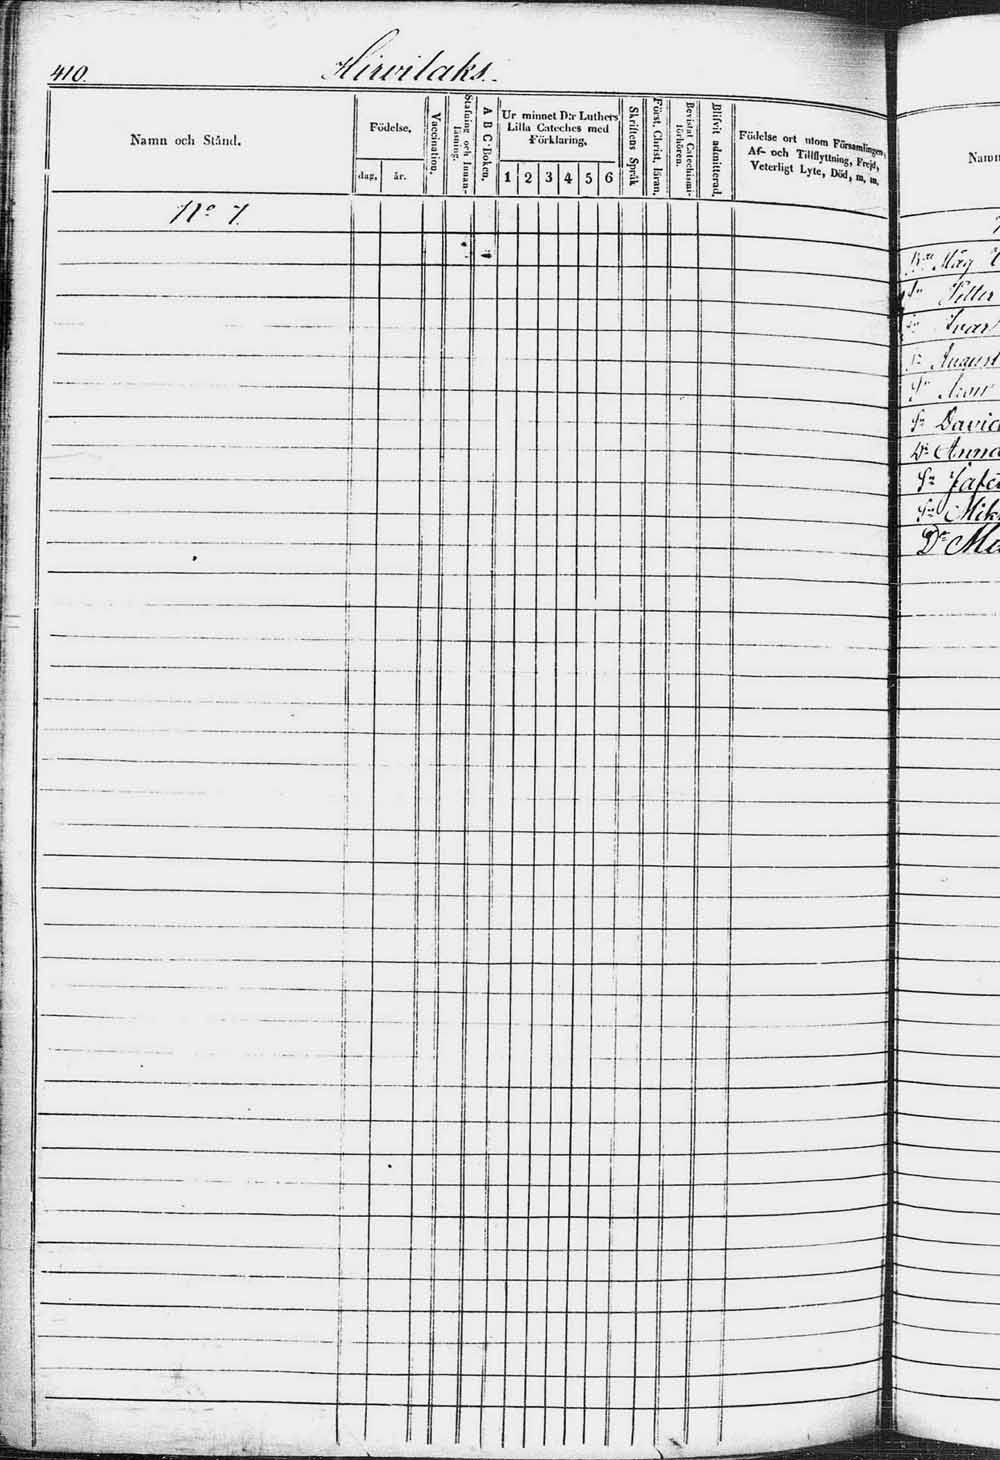 410.
Hirvilaks.
Namn och Stånd.
Födelse.
dag.
år.
Vaccination.
Stafning och Innan-
läsning.
A B C-Boken.
Ur minnet D:r Luthers
Lilla Cateches med
Förklaring.
1 2 3 4 5 6
Skriftens Språk
Först. Christ. läran.
Bevistat Catechismi-
förhören.
Blifvit admitterad.
Födelse ort utom Församlingen,
Af- och Tillflyttning, Frejd,
Veterligt Lyte, Död, m. m.
No 7.
Petter
Ivar
August
David
Anna